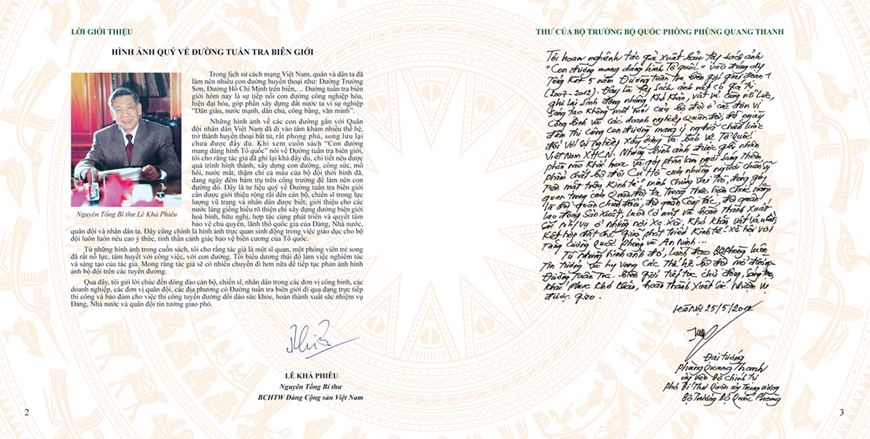 LỜI GIỚI THIỆU
HÌNH ẢNH QUÝ VỀ ĐƯỜNG TUẦN TRA BIÊN GIỚI
Trong lịch sử cách mạng Việt Nam, quân và dân ta đã
làm nên nhiều con đường huyền thoại như: Đường Trường
Sơn, Đường Hồ Chí Minh trên biển,... Đường tuần tra biên
giới hôm nay là sự tiếp nối con đường công nghiệp hóa,
hiện đại hóa, góp phần xây dựng đất nước ta vì sự nghiệp
“Dân giàu, nước mạnh, dân chủ, công bằng, văn minh”.
Những hình ảnh về các con đường gắn với Quân
đội nhân dân Việt Nam đã đi vào tâm khảm nhiều thế hệ,
trở thành huyền thoại bất tử, rất phong phú, song lưu lại
chưa được đầy đủ. Khi xem cuốn sách “Con đường
mang dáng hình Tổ quốc” nói về Đường tuần tra biên giới,
tôi cho rằng tác giả đã ghi lại khá đầy đủ, chi tiết nêu được
quá trình hình thành, xây dựng con đường, công sức, mồ
hôi, nước mắt, thậm chí cả máu của bộ đội thời bình đã,
đang ngày đêm bám trụ trên công trường để làm nên con
đường đó. Đây là tư liệu quý về Đường tuần tra biên giới
cần được giới thiệu rộng rãi đến cán bộ, chiến sĩ trong lực
lượng vũ trang và nhân dân được biết; giới thiệu cho các
nước láng giềng hiểu rõ thiện chí xây dựng đường biên giới
hoà bình, hữu nghị, hợp tác cùng phát triển và quyết tâm
bảo vệ chủ quyền, lãnh thổ quốc gia của Đảng, Nhà nước,
quân đội và nhân dân ta. Đây cũng chính là hình ảnh trực quan sinh động trong việc giáo dục cho bộ
đội luôn luôn nêu cao ý thức, tinh thần cảnh giác bảo vệ biên cương của Tổ quốc.
Nguyên Tổng Bí thư Lê Khả Phiêu
Từ những hình ảnh trong cuốn sách, tôi cho rằng tác giả là một sĩ quan, một phóng viên trẻ song
đã rất nỗ lực, tâm huyết với công việc, với con đường. Tôi biểu dương thái độ làm việc nghiêm túc
và sáng tạo của tác giả. Mong rằng tác giả sẽ có nhiều chuyến đi hơn nữa để tiếp tục phản ánh hình
ảnh bộ đội trên các tuyến đường.
Qua đây, tôi gửi lời chúc đến đông đảo cán bộ, chiến sĩ, nhân dân trong các đơn vị công binh, các
doanh nghiệp, các đơn vị quân đội, các địa phương có Đường tuần tra biên giới đi qua đang trực tiếp
thi công và bảo đảm cho việc thi công tuyến đường dồi dào sức khỏe, hoàn thành xuất sắc nhiệm vụ
Đảng, Nhà nước và quân đội tin tưởng giao phó.
LÊ KHẢ PHIÊU
Nguyên Tổng Bí thư
BCHTW Đảng Cộng sản Việt Nam
2
THƯ CỦA BỘ TRƯỞNG BỘ QUỐC PHÒNG PHÙNG QUANG THANH
Tôi hoan nghênh tác giả xuất bản tập sách ảnh
“Con đường mang dáng hình Tổ quốc” vào đúng dịp
Tổng kết 5 năm Đường tuần tra biên giới giai đoạn 1
(2007-2012). Đây là tập sách ảnh rất có giá trị
ghi lại sinh động những khó khăn, vất vả cùng nỗ lực,
sáng tạo không mệt mỏi của cán bộ ở các đơn vị
Công binh và các doanh nghiệp quân đội, đã ngày
đêm thi công con đường mang ý nghĩa chiến lược
đối với sự nghiệp xây dựng và bảo vệ Tổ quốc
Việt Nam XHCN. Những hình ảnh được ghi nhận
phẩm chất bộ đội Cụ Hồ
Tăng cường Quốc phòng và An ninh...
Từ những hình ảnh đó, Lãnh đạo Bộ Quốc phòng luôn
Tin tưởng và hy vọng các thế hệ bộ đội mở đường
Đường tuần tra biên giới tiếp tục chủ động, sáng tạo,
khắc phục khó khăn, hoàn thành xuất sắc nhiệm vụ
được giao.
Hà Nội 25/5/2012
Đại tướng
Phùng Quang Thanh
Ủy viên Bộ Chính trị
Phó Bí thư Quân ủy Trung ương
Bộ trưởng Bộ Quốc Phòng
3